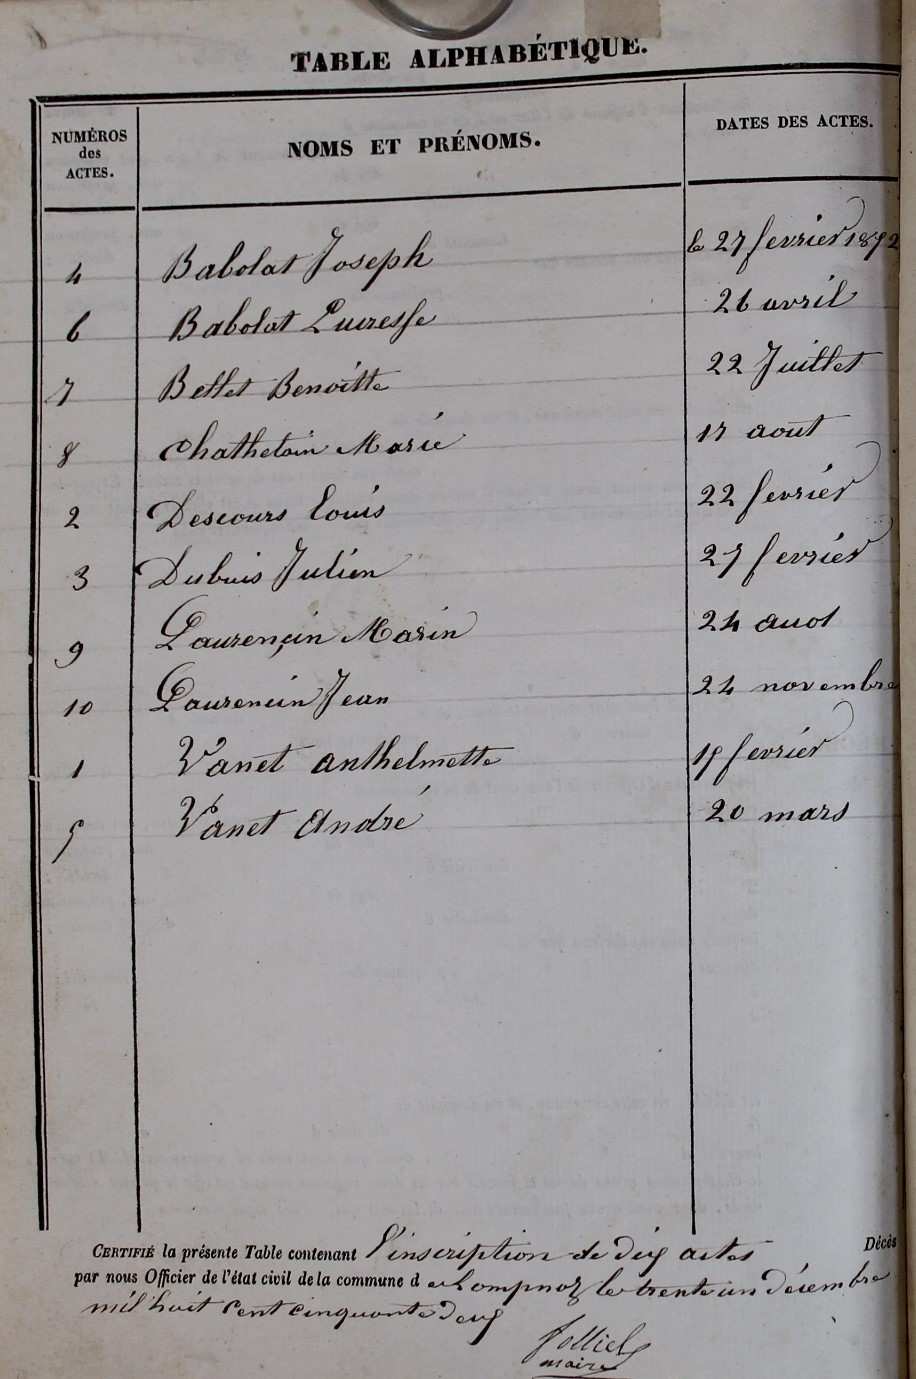 TABLE ALPHABÉTIQUE.
NUMÉROS des ACTES. NOMS ET PRÉNOMS. DATES DES ACTES.
4 Babolat Joseph le 27 fevrier 1852
6 Babolat Lucresse 26 avril
7 Bellet Benoitte 22 Juillet
8 Chathelain Marie 17 aout
2 Descours Louis 22 fevrier
3 Dubuis Julien 27 fevrier
9 Laurençin Marin 24 auot
10 Laurencin Jean 24 novembre
1 Vanet anthelmette 15 fevrier
5 Vanet André 20 mars
CERTIFIÉ la présente Table contenant l'inscription de dix actes Décès
par nous Officier de l'état civil de la commune d e Lompnaz le trente un décembre
mil huit cent cinquante deux
maire